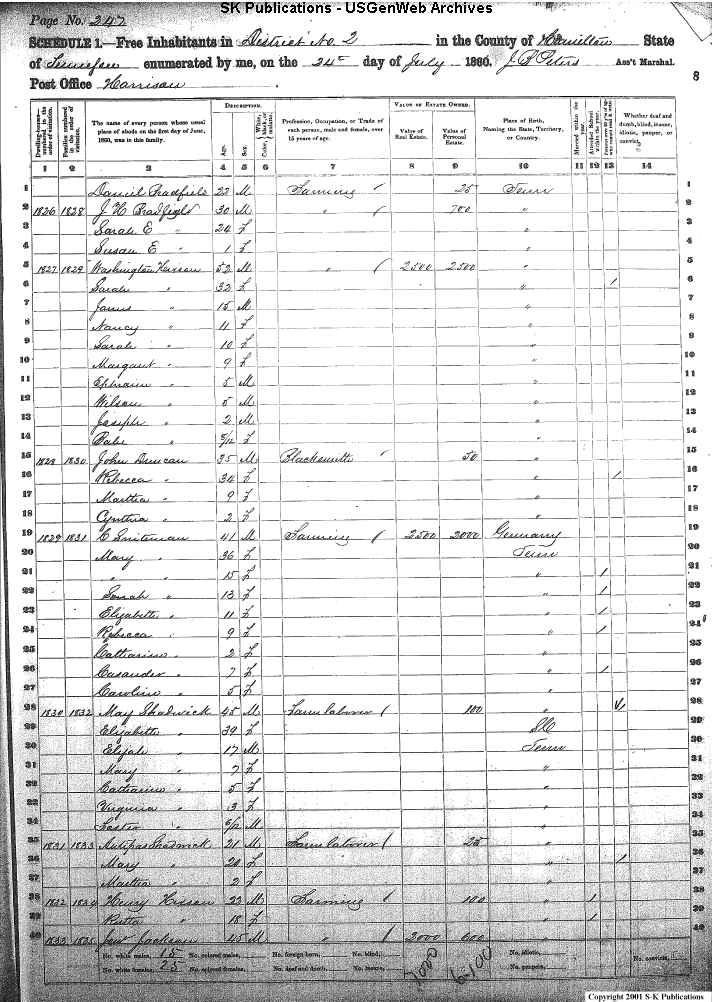 SK Publications - USGenWeb Archives
Page No. 247
SCHEDULE 1.—Free Inhabitants in District No. 2 in the County of Hamilton State
of Tennessee enumerated by me, on the 24th day of July 1860. J. P. Peters Ass't Marshal.
Post Office Harrison
8
Dwelling-houses—numbered in the order of visitation. Families numbered in the order of visitation. The name of every person whose usual place of abode on the first day of June, 1860, was in this family. DESCRIPTION. Age. Sex. Color, White, black, or mulatto. Profession, Occupation, or Trade of each person, male and female, over 15 years of age. VALUE OF ESTATE OWNED. Value of Real Estate. Value of Personal Estate. Place of Birth, Naming the State, Territory, or Country. Married within the year. Attended School within the year. Whether deaf and dumb, blind, insane, idiotic, pauper, or convict.
1 2 3 4 5 6 7 8 9 10 11 12 13 14
1 Daniel Bradfield 22 M Farming 25 Tenn 1
2 1826 1828 J H Bradfield 30 M " 700 " 2
3 Sarah E " 24 f " 3
4 Susan E " 1 f " 4
5 1827 1829 Washington Hixson 52 M " 2500 2500 " 5
6 Sarah " 32 f " / 6
7 James " 15 M " 7
8 Nancy " 11 f " 8
9 Sarah " 10 f " 9
10 Margaret " 9 f " 10
11 Ephraim " 5 M " 11
12 Wilson " 5 M " 12
13 Joseph " 2 M " 13
14 Babe " 5/12 f " 14
15 1828 1830 John Duncan 35 M Blacksmith 50 " 15
16 Rebecca " 34 f " / 16
17 Martha " 9 f " 17
18 Cynthia " 2 f " 18
19 1829 1831 C Smiteman 41 M Farming 2500 2000 Germany 19
20 Mary " 36 f Tenn 20
21 " " 15 f " / 21
22 Sarah " 13 f " / 22
23 Elizabeth " 11 f " / 23
24 Rebecca " 9 f " / 24
25 Catharine " 2 f " 25
26 Casander " 7 f " / 26
27 Caroline " 5 f " 27
28 1830 1832 May Shadwick 45 M Farm laborer 100 " 28
29 Elizabeth " 39 f SC 29
30 Elijah " 17 M Tenn 30
31 Mary " 7 f " 31
32 Catharine " 5 f " 32
33 Virginia " 3 f " 33
34 Foster " 6/12 M " 34
35 1831 1833 Shadwick 21 M Farm laborer 25 " 35
36 Mary " 20 f " / 36
37 Martha " 2 f " 37
38 1832 1834 Henry Hixson 22 M Farming 100 " / 38
39 " 18 f " / 39
40 1833 1835 Jackson 45 M " 2000 600 " 40
No. white males, 15 No. colored males, No. foreign born, No. blind, No. idiotic, No. convict,
No. white females, 25 No. colored females, No. deaf and dumb, No. insane, 7000 6100 No. paupers,
Copyright 2001 S-K Publications